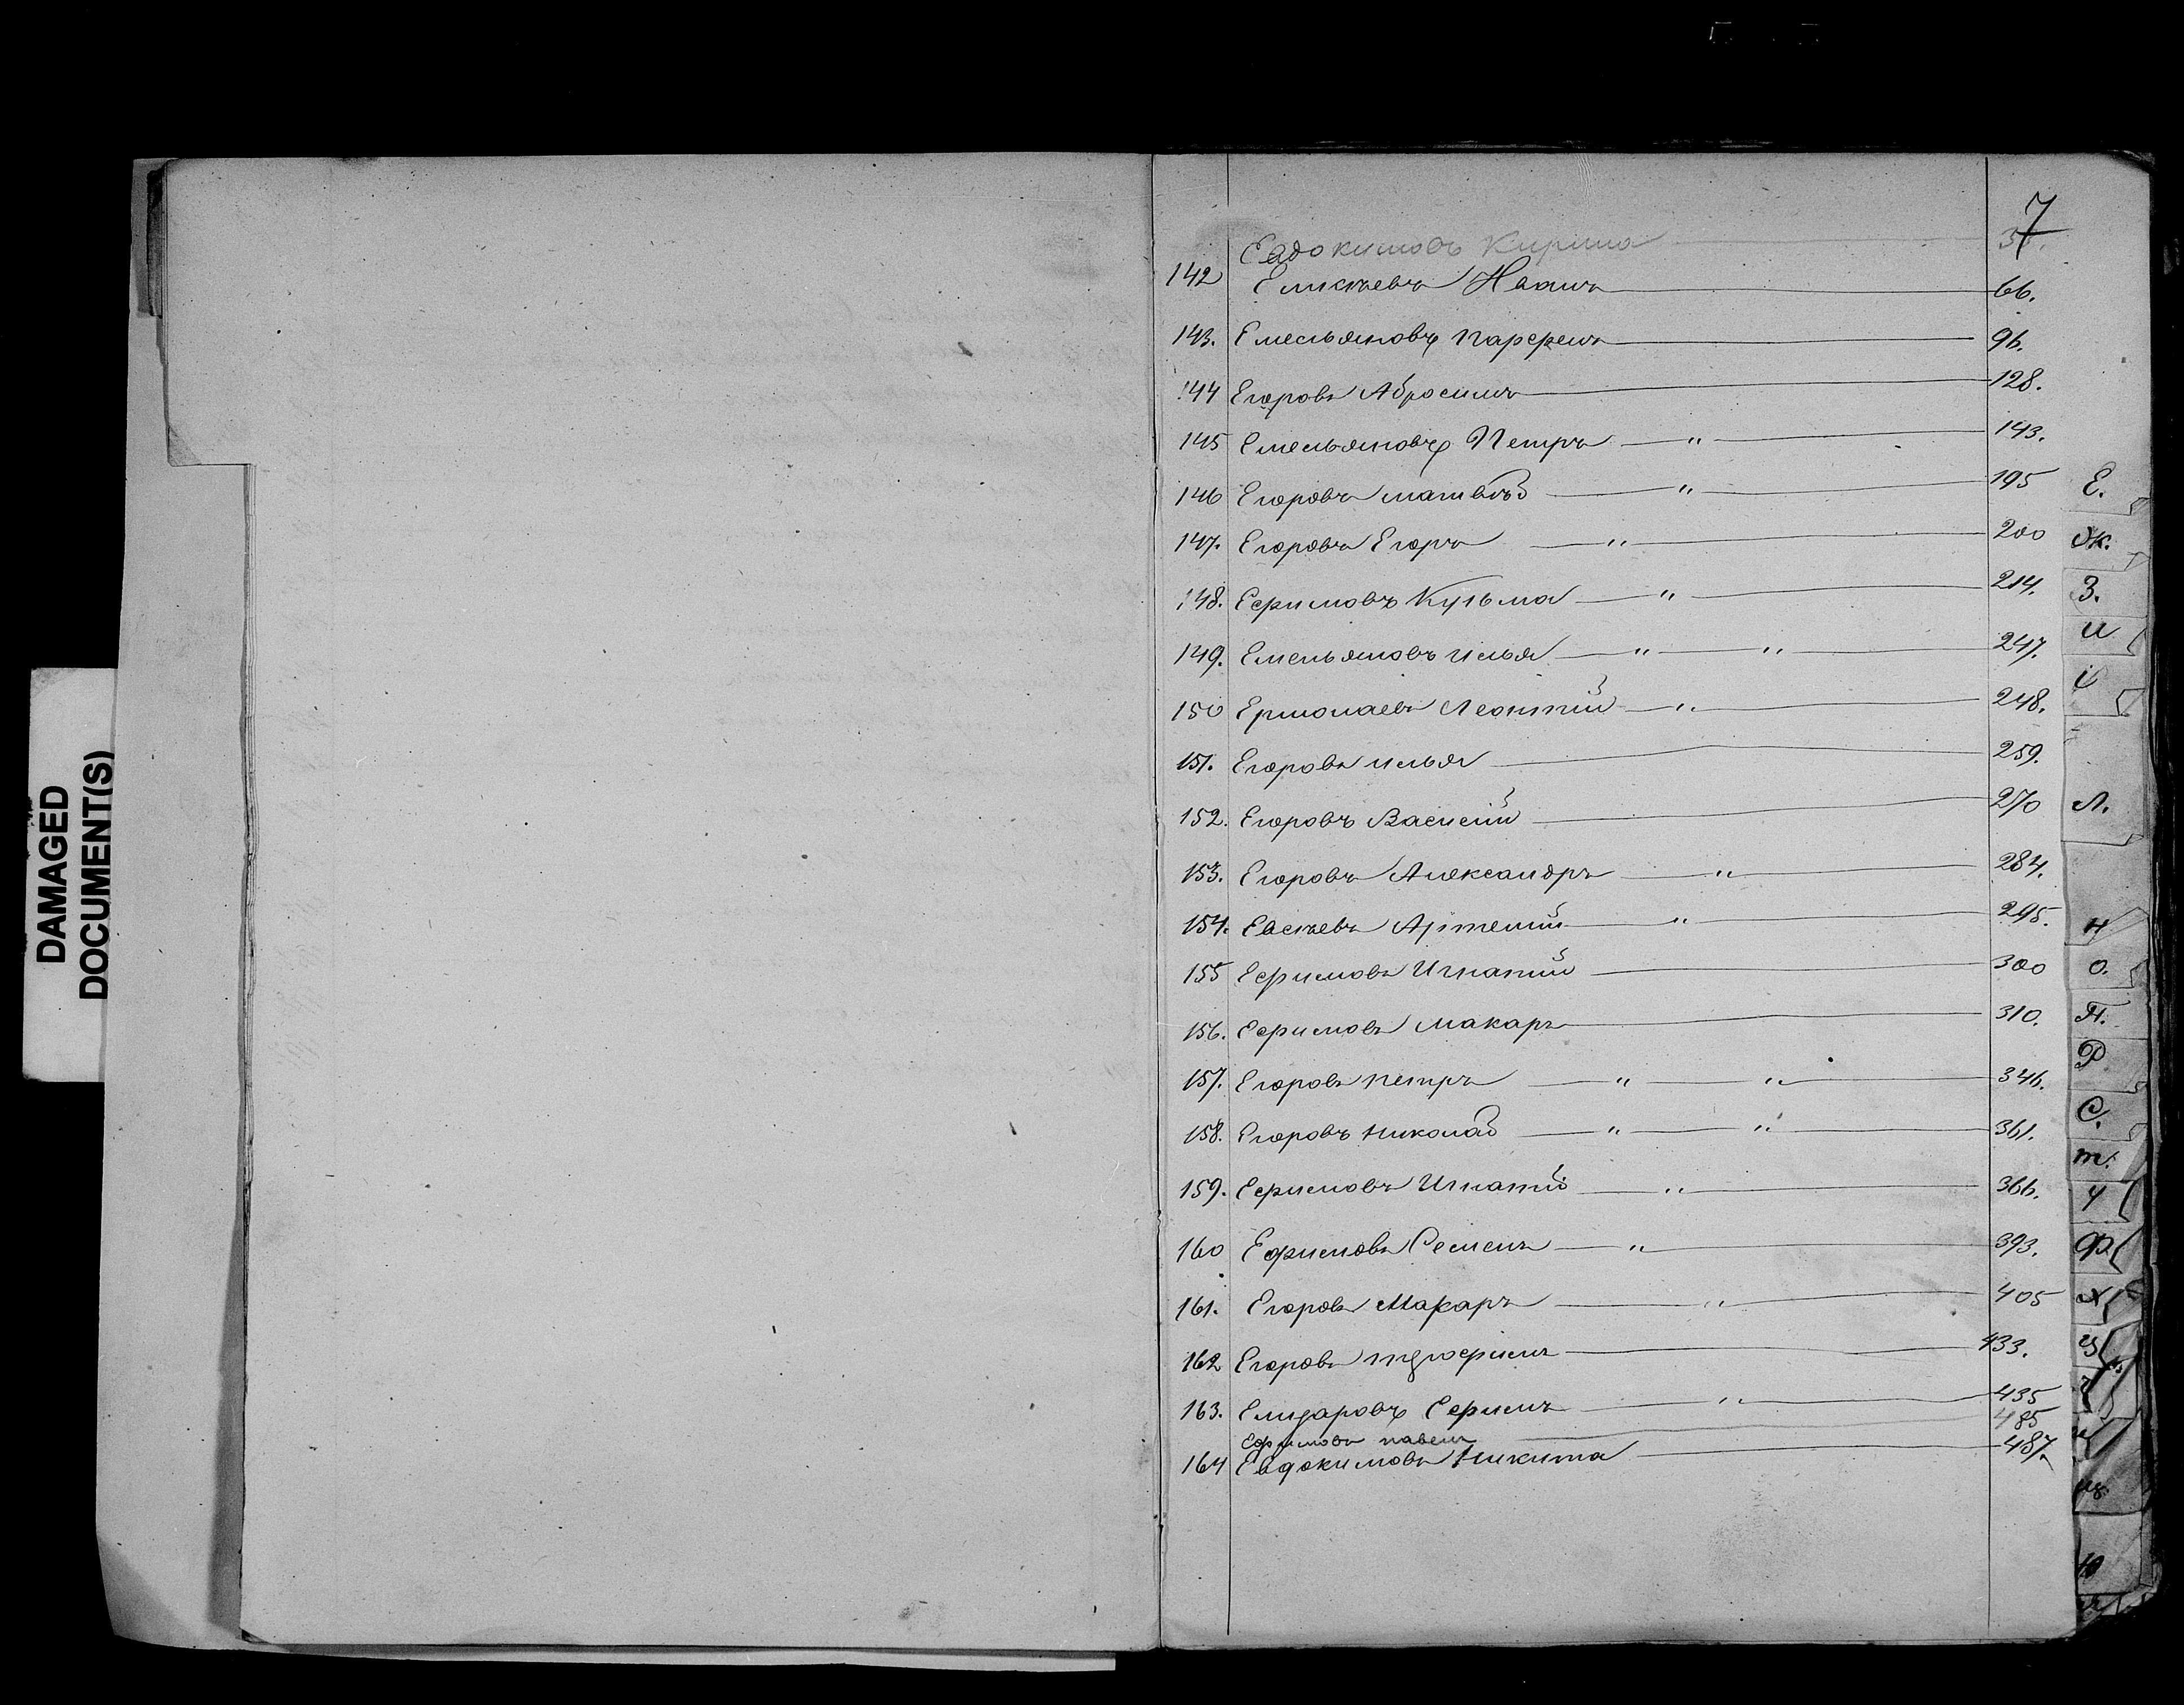 DAMAGED
DOCUMENT(S)
7
Евдокимовъ Кирила
142 Елисѣевъ Иванъ 66.
143. Емельяновъ Парфенъ 96.
144 Егоровъ Абросимъ 128.
145 Емельяновъ Петръ — " — 143.
146 Егоровъ Матвѣй — " — 195
147. Егоровъ Егоръ — " — 200
148. Ефимовъ Кузьма — " — 214.
149. Емельяновъ Илья — " — " — 247.
150 Ермолаевъ Леонтій — " — 248.
151. Егоровъ Илья 259.
152. Егоровъ Василій 270
153. Егоровъ Александръ — " — 284.
154. Евсѣевъ Артемій — " — 295.
155 Ефимовъ Игнатій 300
156. Ефимовъ Макаръ 310.
157. Егоровъ Петръ — " — " — 346.
158. Егоровъ Николай — " — " — 361.
159. Ефимовъ Игнатій — " — 366.
160 Ефимовъ Семенъ — " — 393.
161. Егоровъ Макаръ — " — 405
162 Егоровъ 433.
163. Елизаровъ Ефимъ — " — 435
Ефимовъ Павелъ 485
164 Евдокимовъ Никита 487.
Е.
Ж.
З.
И
І
Л.
Н
О.
П.
Р
С.
Т.
У
Ф
Х
Ц
Ч
Щ
Ю